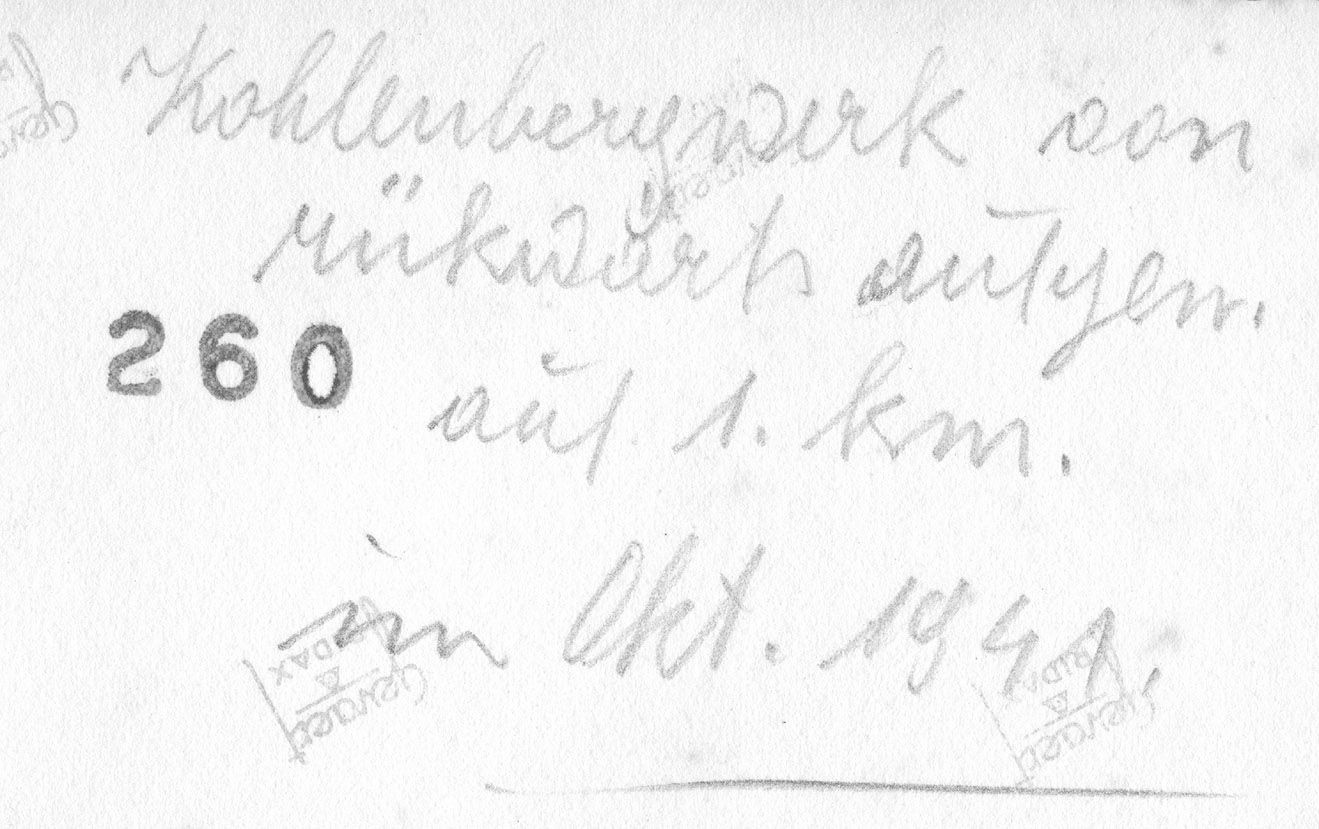 Kohlenbergwerk von
rükwärts aufgen.
260
auf 1. km.
im Okt. 1941.
Gevaert
RIDAX
Gevaert
RIDAX